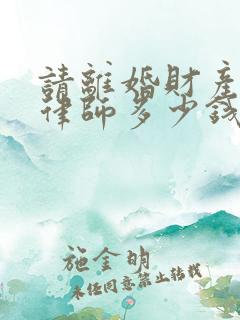 請離婚財產
律師多少錢
施金明
未經同意禁止轉載